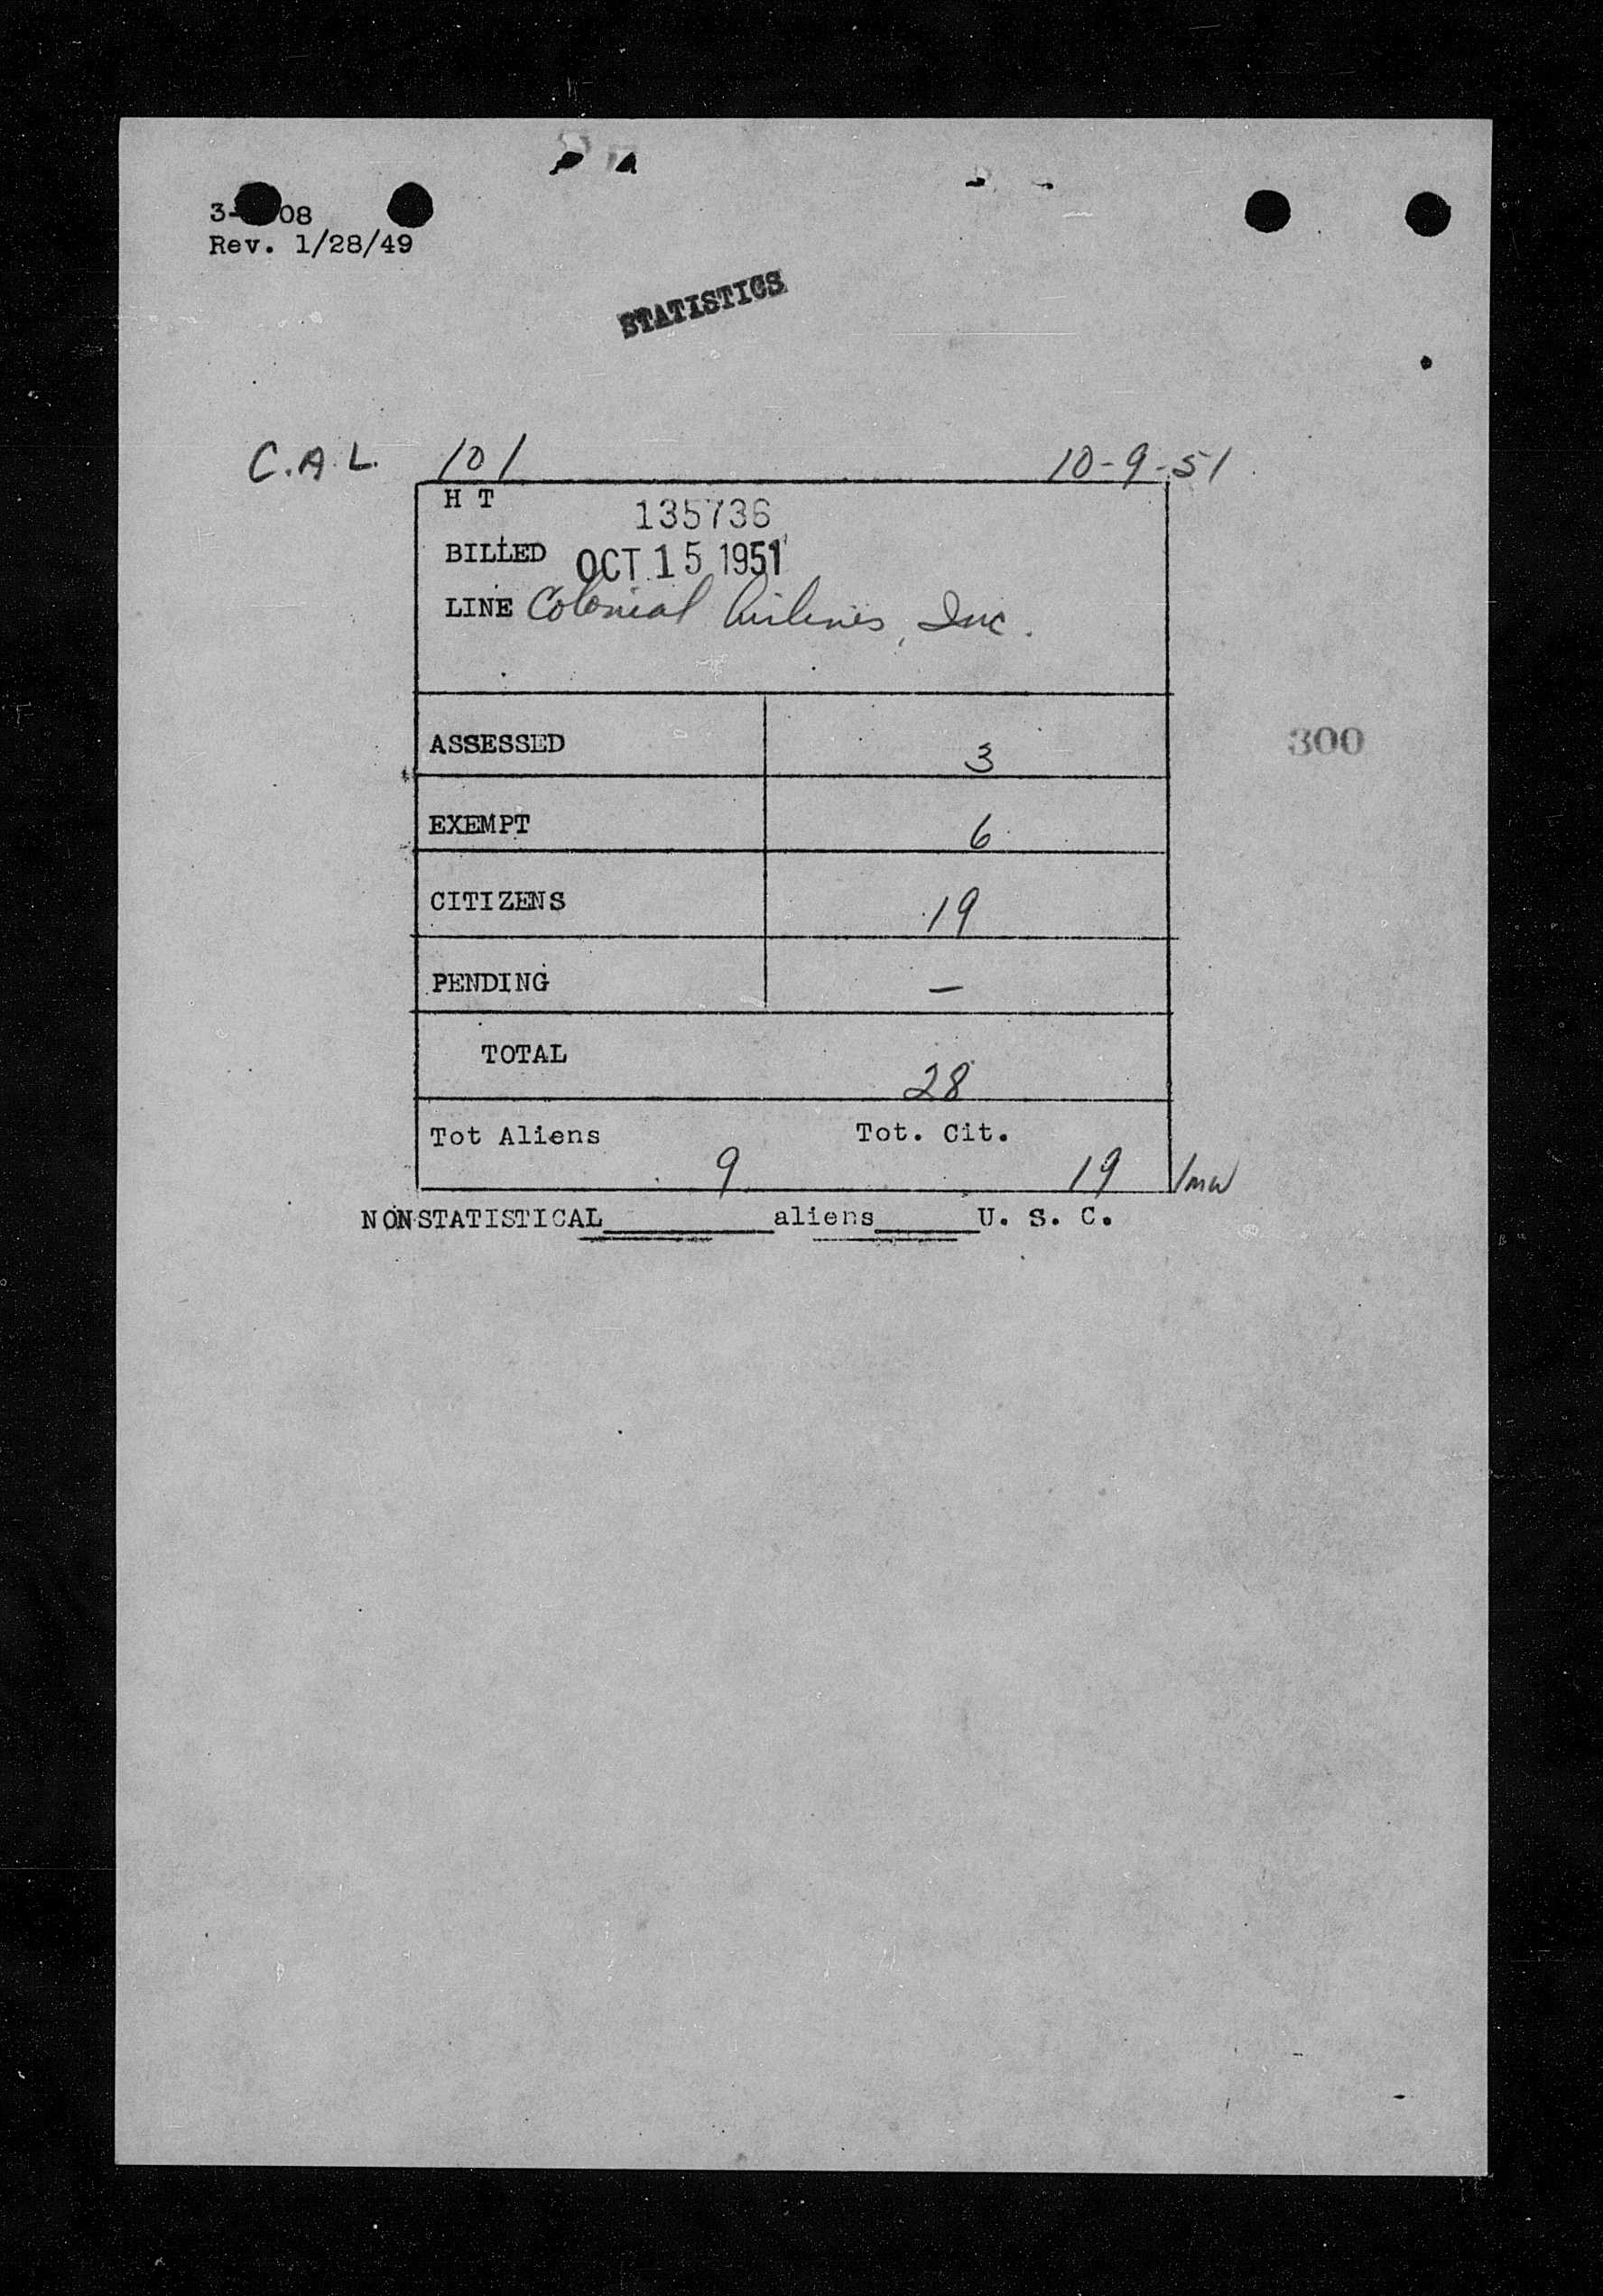 3- 08
Rev. 1/28/49
STATISTICS
C.A.L. 101 10-9-51
H T 135736
BILLED OCT 15 1951
LINE Colonial Airlines, Inc.
ASSESSED 3
300
EXEMPT 6
CITIZENS 19
PENDING —
TOTAL 28
Tot Aliens 9 Tot. Cit. 19 /mw
NONSTATISTICAL______aliens______U. S. C.